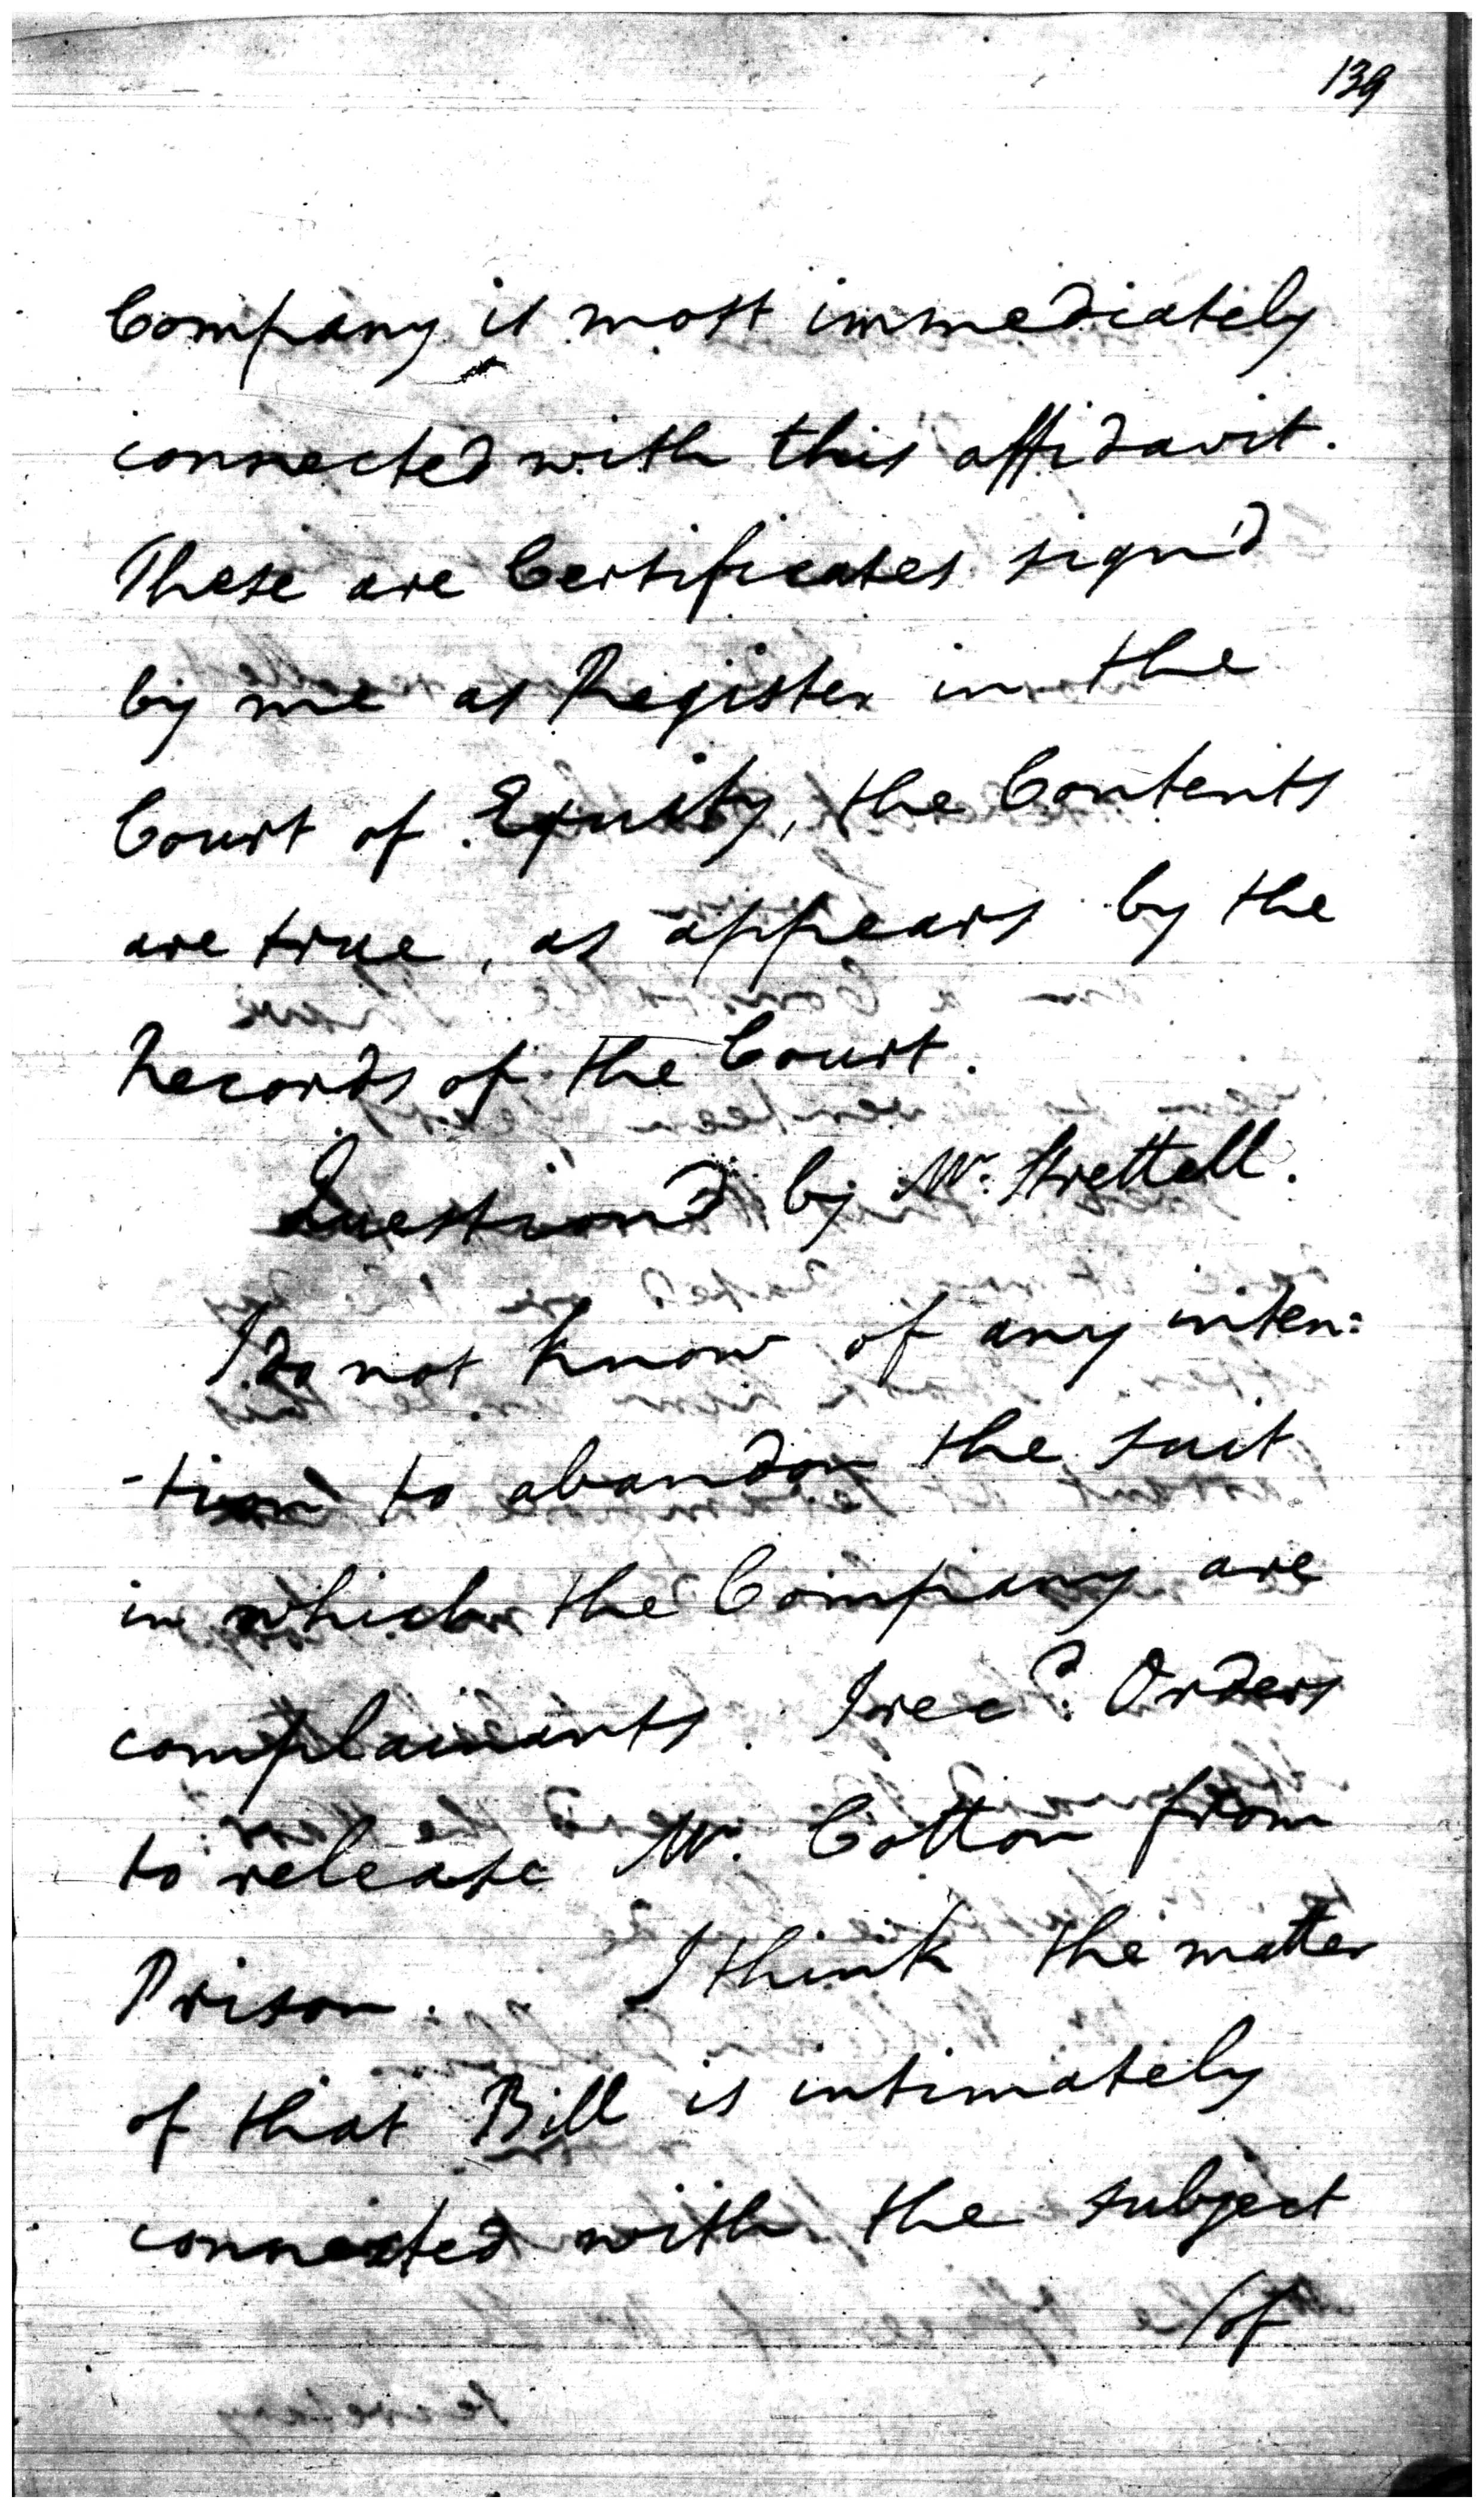 139
Company is most immediately
connected with this affidavit.
These are Certificates sign'd
by me as Register in the
Court of Equity, the Contents
are true, as appears by the
Records of the Court.
Question'd by Mr. Strettell.
I do not know of any inten=
-tion to abandon the suit
in which the Company are
complainants. I rec'd. Orders
to release Mr. Cotton from
Prison. I think the matter
of that Bill is intimately
connected with the subject
/of